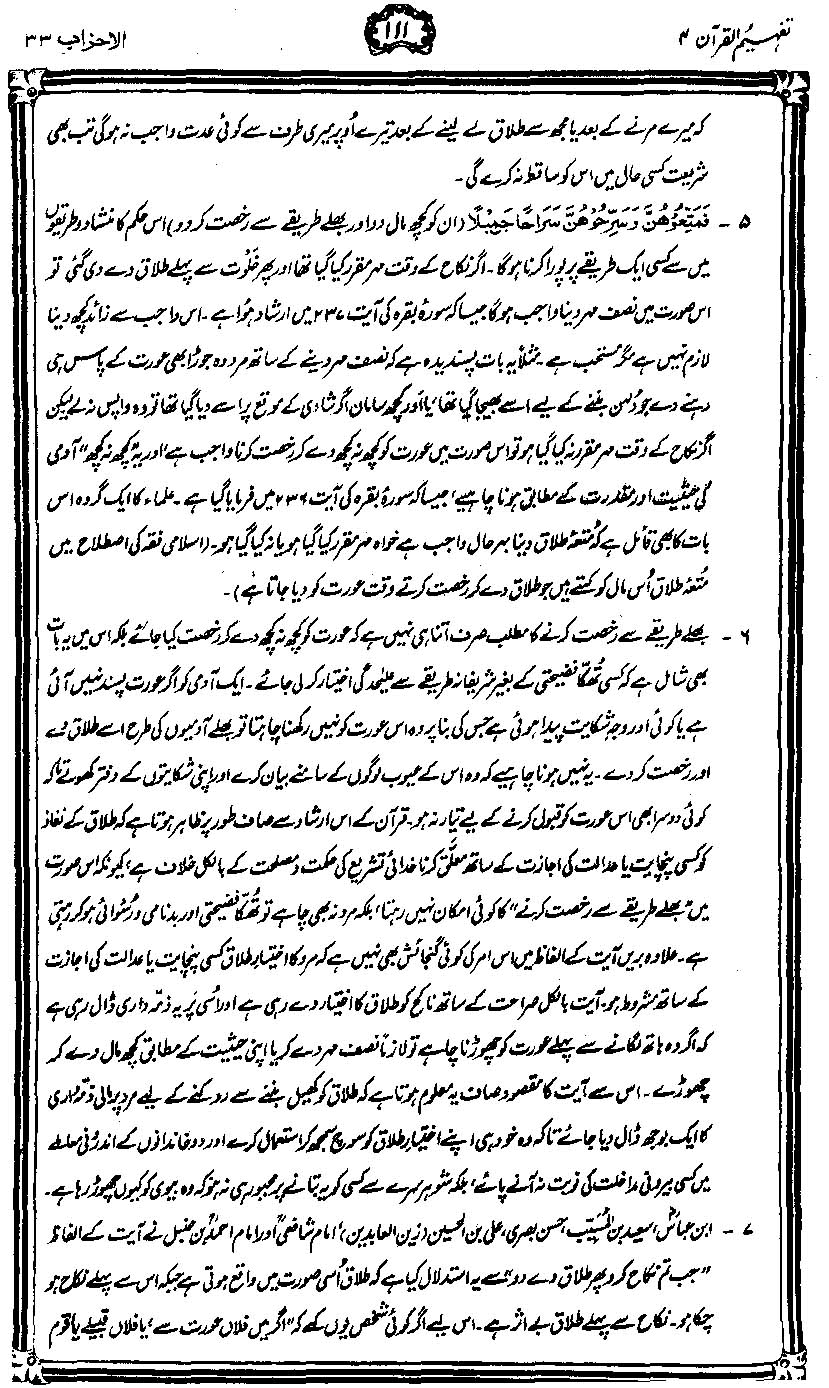 تفہیم القرآن ۴
۱۱۱
الاحزاب ۳۳
کہ میرے مرنے کے بعد یا مجھ سے طلاق لے لینے کے بعد تیرے اُوپر میری طرف سے کوئی عدت واجب نہ ہوگی تب بھی
شریعت کسی حال میں اس کو ساقط نہ کرے گی۔
۵ - فَمَتِّعُوْهُنَّ وَسَرِّحُوْهُنَّ سَرَاحًا جَمِيْلًا (ان کو کچھ مال دو اور بھلے طریقے سے رخصت کر دو) اس حکم کا منشاد و طریقوں
میں سے کسی ایک طریقے پر پورا کرنا ہوگا۔ اگر نکاح کے وقت مہر مقرر کیا گیا تھا اور پھر خَلْوت سے پہلے طلاق دے دی گئی تو
اس صورت میں نصف مہر دینا واجب ہوگا جیسا کہ سورۂ بقرہ کی آیت ۲۳۷ میں ارشاد ہوا ہے۔ اس واجب سے زائد کچھ دینا
لازم نہیں ہے مگر مستحب ہے۔ مثلاً یہ بات پسندیدہ ہے کہ نصف مہر دینے کے ساتھ مرد وہ جوڑا بھی عورت کے پاس ہی
رہنے دے جو دُلہن بننے کے لیے اسے بھیجا گیا تھا، یا اَور کچھ سامان اگر شادی کے موقع پر اسے دیا گیا تھا تو وہ واپس نہ لے لیکن
اگر نکاح کے وقت مہر مقرر نہ کیا گیا ہو تو اس صورت میں عورت کو کچھ نہ کچھ دے کر رخصت کرنا واجب ہے، اور یہ ”کچھ نہ کچھ“ آدمی
کی حیثیت اور مقدرت کے مطابق ہونا چاہیے، جیسا کہ سورۂ بقرہ کی آیت ۲۳۶ میں فرمایا گیا ہے۔ علماء کا ایک گروہ اس
بات کا بھی قائل ہے کہ مُتعۂ طلاق دینا بہر حال واجب ہے خواہ مہر مقرر کیا گیا ہو یا نہ کیا گیا ہو۔ (اسلامی فقہ کی اصطلاح میں
مُتعۂ طلاق اُس مال کو کہتے ہیں جو طلاق دے کر رخصت کرتے وقت عورت کو دیا جاتا ہے)۔
۶ - بھلے طریقے سے رخصت کرنے کا مطلب صرف اتنا ہی نہیں ہے کہ عورت کو کچھ نہ کچھ دے کر رخصت کیا جائے بلکہ اس میں یہ بات
بھی شامل ہے کہ کسی تُھکّا فضیحتی کے بغیر شریفانہ طریقے سے علیحدگی اختیار کر لی جائے۔ ایک آدمی کو اگر عورت پسند نہیں آئی
ہے یا کوئی اور وجہِ شکایت پیدا ہوئی ہے جس کی بنا پر وہ اس عورت کو نہیں رکھنا چاہتا تو بھلے آدمیوں کی طرح اسے طلاق دے
اور رخصت کر دے۔ یہ نہیں ہونا چاہیے کہ وہ اس کے عیوب لوگوں کے سامنے بیان کرے اور اپنی شکایتوں کے دفتر کھولے تاکہ
کوئی دوسرا بھی اس عورت کو قبول کرنے کے لیے تیار نہ ہو۔ قرآن کے اس ارشاد سے صاف طور پر ظاہر ہوتا ہے کہ طلاق کے نفاذ
کو کسی پنچایت یا عدالت کی اجازت کے ساتھ معلّق کرنا خدائی تشریع کی حکمت و مصلحت کے بالکل خلاف ہے، کیونکہ اس صورت
میں ”بھلے طریقے سے رخصت کرنے“ کا کوئی امکان نہیں رہتا، بلکہ مرد نہ بھی چاہے تو تُھکّا فضیحتی اور بدنامی و رُسوائی ہو کر رہتی
ہے۔ علاوہ بریں آیت کے الفاظ میں اس امر کی کوئی گنجائش بھی نہیں ہے کہ مرد کا اختیارِ طلاق کسی پنچایت یا عدالت کی اجازت
کے ساتھ مشروط ہو۔ آیت بالکل صراحت کے ساتھ ناکح کو طلاق کا اختیار دے رہی ہے اور اُسی پر یہ ذمّہ داری ڈال رہی ہے
کہ اگر وہ ہاتھ لگانے سے پہلے عورت کو چھوڑنا چاہے تو لازماً نصف مہر دے کر یا اپنی حیثیت کے مطابق کچھ مال دے کر
چھوڑے۔ اس سے آیت کا مقصود صاف یہ معلوم ہوتا ہے کہ طلاق کو کھیل بننے سے روکنے کے لیے مرد پر مالی ذمّہ داری
کا ایک بوجھ ڈال دیا جائے تاکہ وہ خود ہی اپنے اختیارِ طلاق کو سوچ سمجھ کر استعمال کرے اور دو خاندانوں کے اندرونی معاملے
میں کسی بیرونی مداخلت کی نوبت نہ آنے پائے، بلکہ شوہر سرے سے کسی کو یہ بتانے پر مجبور ہی نہ ہو کہ وہ بیوی کو کیوں چھوڑ رہا ہے۔
۷ - ابن عباسؓ، سعید بن المُسَیِّب، حسن بصری، علی بن الحسین (زین العابدین)، امام شافعیؒ اور امام احمدؒ بن حنبل نے آیت کے الفاظ
”جب تم نکاح کرو پھر طلاق دے دو“ سے یہ استدلال کیا ہے کہ طلاق اُسی صورت میں واقع ہوتی ہے جبکہ اس سے پہلے نکاح ہو
چکا ہو۔ نکاح سے پہلے طلاق بے اثر ہے۔ اس لیے اگر کوئی شخص یوں کہے کہ ”اگر میں فلاں عورت سے، یا فلاں قبیلے یا قوم